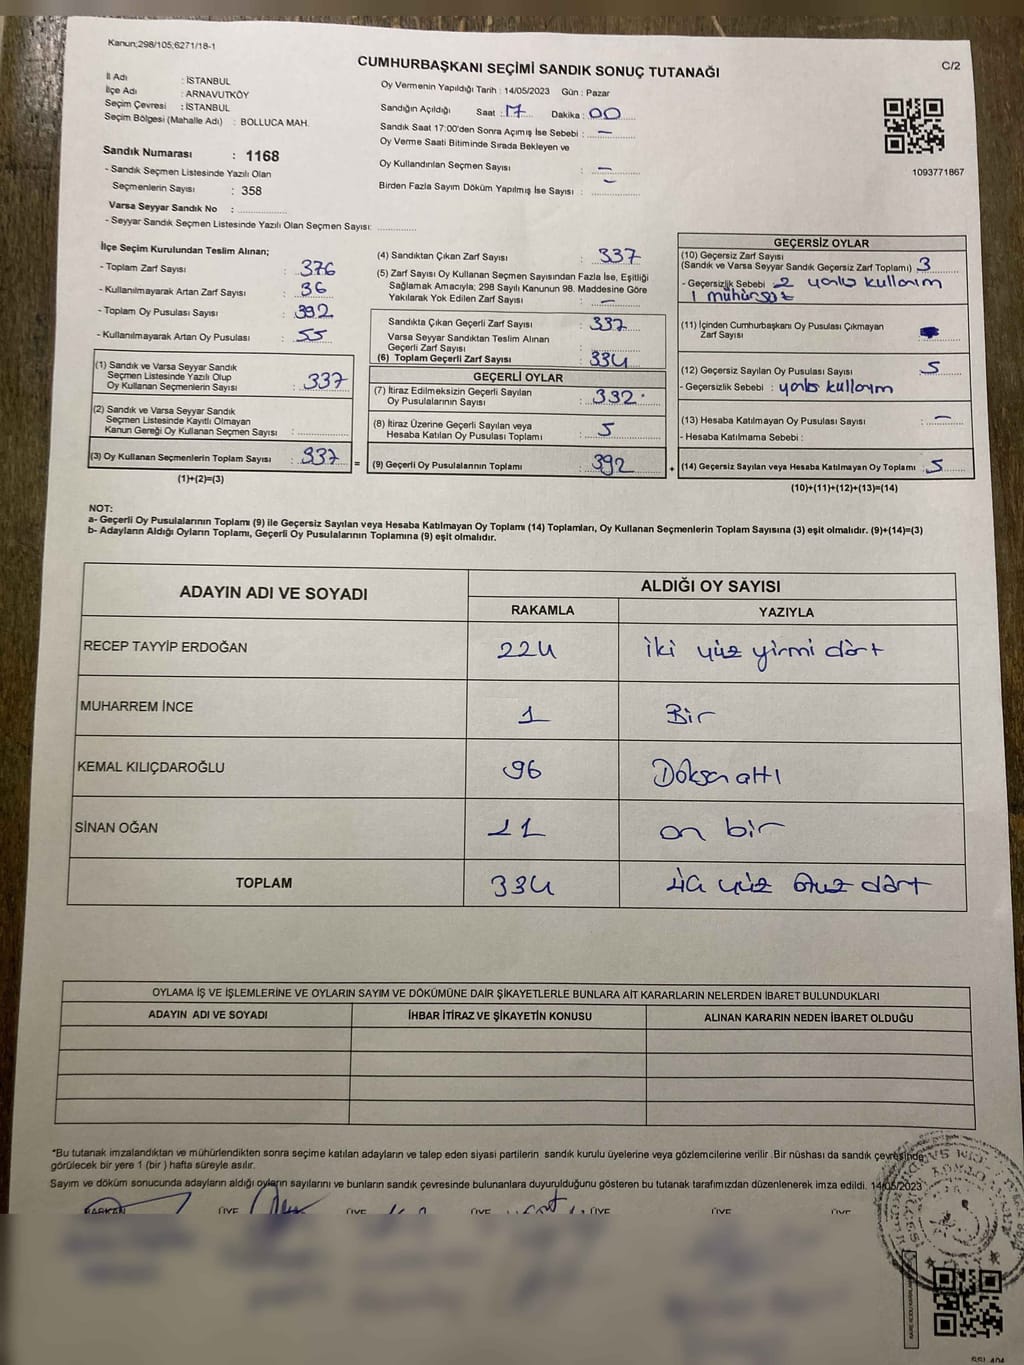 Kanun;298/105;6271/18-1
C/2
CUMHURBAŞKANI SEÇİMİ SANDIK SONUÇ TUTANAĞI
İl Adı : İSTANBUL
İlçe Adı : ARNAVUTKÖY
Seçim Çevresi : İSTANBUL
Seçim Bölgesi (Mahalle Adı) : BOLLUCA MAH.
Sandık Numarası : 1168
- Sandık Seçmen Listesinde Yazılı Olan
Seçmenlerin Sayısı : 358
Varsa Seyyar Sandık No :
- Seyyar Sandık Seçmen Listesinde Yazılı Olan Seçmen Sayısı:
Oy Vermenin Yapıldığı Tarih : 14/05/2023 Gün : Pazar
Sandığın Açıldığı Saat : 17 Dakika : 00
Sandık Saat 17:00'den Sonra Açımış İse Sebebi : –
Oy Verme Saati Bitiminde Sırada Bekleyen ve
Oy Kullandırılan Seçmen Sayısı : –
Birden Fazla Sayım Döküm Yapılmış İse Sayısı : –
1093771867
İlçe Seçim Kurulundan Teslim Alınan;
- Toplam Zarf Sayısı : 376
- Kullanılmayarak Artan Zarf Sayısı : 36
- Toplam Oy Pusulası Sayısı : 392
- Kullanılmayarak Artan Oy Pusulası : 55
(1) Sandık ve Varsa Seyyar Sandık
Seçmen Listesinde Yazılı Olup
Oy Kullanan Seçmenlerin Sayısı : 337
(2) Sandık ve Varsa Seyyar Sandık
Seçmen Listesinde Kayıtlı Olmayan
Kanun Gereği Oy Kullanan Seçmen Sayısı :
(3) Oy Kullanan Seçmenlerin Toplam Sayısı : 337
(1)+(2)=(3)
=
(4) Sandıktan Çıkan Zarf Sayısı : 337
(5) Zarf Sayısı Oy Kullanan Seçmen Sayısından Fazla İse, Eşitliği
Sağlamak Amacıyla; 298 Sayılı Kanunun 98. Maddesine Göre
Yakılarak Yok Edilen Zarf Sayısı : –
Sandıkta Çıkan Geçerli Zarf Sayısı : 337
Varsa Seyyar Sandıktan Teslim Alınan
Geçerli Zarf Sayısı :
(6) Toplam Geçerli Zarf Sayısı : 334
GEÇERLİ OYLAR
(7) İtiraz Edilmeksizin Geçerli Sayılan
Oy Pusulalarının Sayısı : 332
(8) İtiraz Üzerine Geçerli Sayılan veya
Hesaba Katılan Oy Pusulası Toplamı : 5
(9) Geçerli Oy Pusulalarının Toplamı : 392
+
GEÇERSİZ OYLAR
(10) Geçersiz Zarf Sayısı
(Sandık ve Varsa Seyyar Sandık Geçersiz Zarf Toplamı) 3
- Geçersizlik Sebebi 2 yanlış kullanım
1 mühürsüz
(11) İçinden Cumhurbaşkanı Oy Pusulası Çıkmayan
Zarf Sayısı :
(12) Geçersiz Sayılan Oy Pusulası Sayısı : 5
- Geçersizlik Sebebi : yanlış kullanım
(13) Hesaba Katılmayan Oy Pusulası Sayısı : –
- Hesaba Katılmama Sebebi :
(14) Geçersiz Sayılan veya Hesaba Katılmayan Oy Toplamı : 5
(10)+(11)+(12)+(13)=(14)
NOT:
a- Geçerli Oy Pusulalarının Toplamı (9) ile Geçersiz Sayılan veya Hesaba Katılmayan Oy Toplamı (14) Toplamları, Oy Kullanan Seçmenlerin Toplam Sayısına (3) eşit olmalıdır. (9)+(14)=(3)
b- Adayların Aldığı Oyların Toplamı, Geçerli Oy Pusulalarının Toplamına (9) eşit olmalıdır.
ADAYIN ADI VE SOYADI
ALDIĞI OY SAYISI
RAKAMLA YAZIYLA
RECEP TAYYİP ERDOĞAN 224 iki yüz yirmi dört
MUHARREM İNCE 1 Bir
KEMAL KILIÇDAROĞLU 96 Doksan altı
SİNAN OĞAN 11 on bir
TOPLAM 334 üç yüz otuz dört
OYLAMA İŞ VE İŞLEMLERİNE VE OYLARIN SAYIM VE DÖKÜMÜNE DAİR ŞİKAYETLERLE BUNLARA AİT KARARLARIN NELERDEN İBARET BULUNDUKLARI
ADAYIN ADI VE SOYADI İHBAR İTİRAZ VE ŞİKAYETİN KONUSU ALINAN KARARIN NEDEN İBARET OLDUĞU
*Bu tutanak imzalandıktan ve mühürlendikten sonra seçime katılan adayların ve talep eden siyasi partilerin sandık kurulu üyelerine veya gözlemcilerine verilir .Bir nüshası da sandık çevresinde
görülecek bir yere 1 (bir ) hafta süreyle asılır.
Sayım ve döküm sonucunda adayların aldığı oyların sayılarını ve bunların sandık çevresinde bulunanlara duyurulduğunu gösteren bu tutanak tarafımızdan düzenlenerek imza edildi. 14/05/2023
BAŞKAN ÜYE ÜYE ÜYE ÜYE ÜYE ÜYE